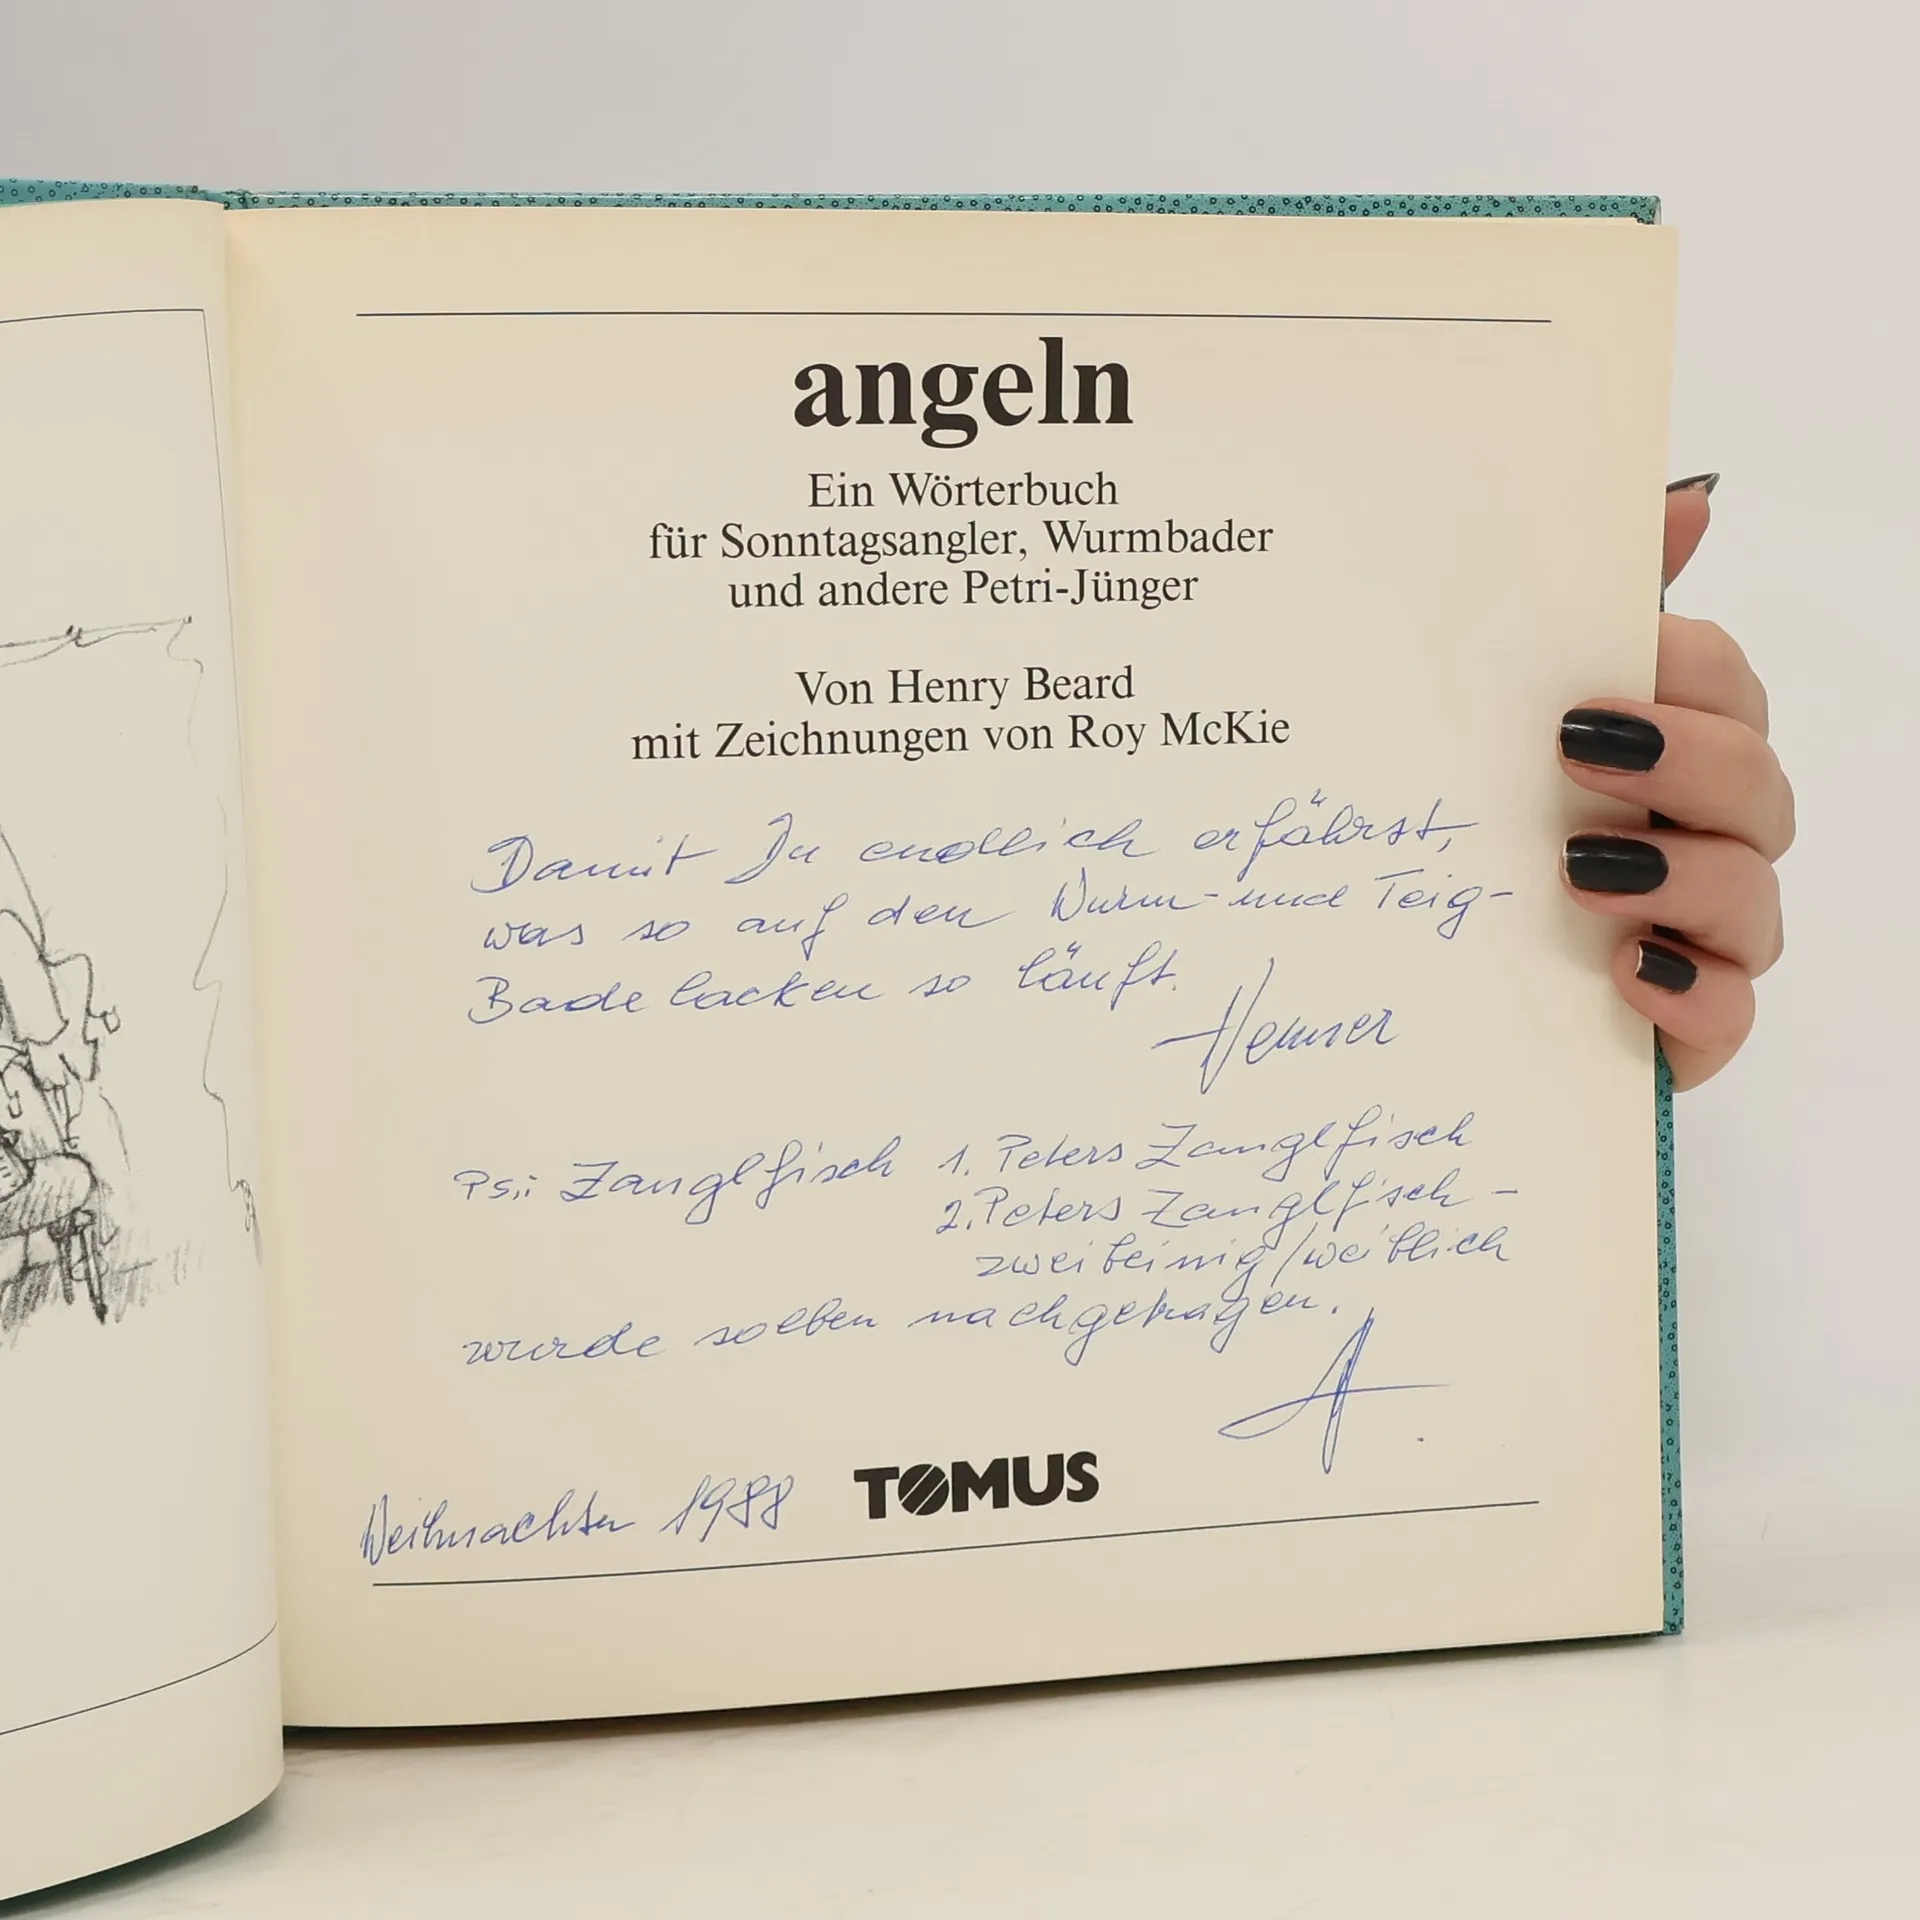 angeln
Ein Wörterbuch
für Sonntagsangler, Wurmbader
und andere Petri-Jünger
Von Henry Beard
mit Zeichnungen von Roy McKie
Damit Du endlich erfährst,
was so auf den Wurm- und Teig-
Badelacken so läuft.
Ps.: Zanglfisch 1. Peters Zanglfisch
2. Peters Zanglfisch -
zweibeinig/weiblich
wurde soeben nachgetragen.
Weihnachten 1988
TOMUS